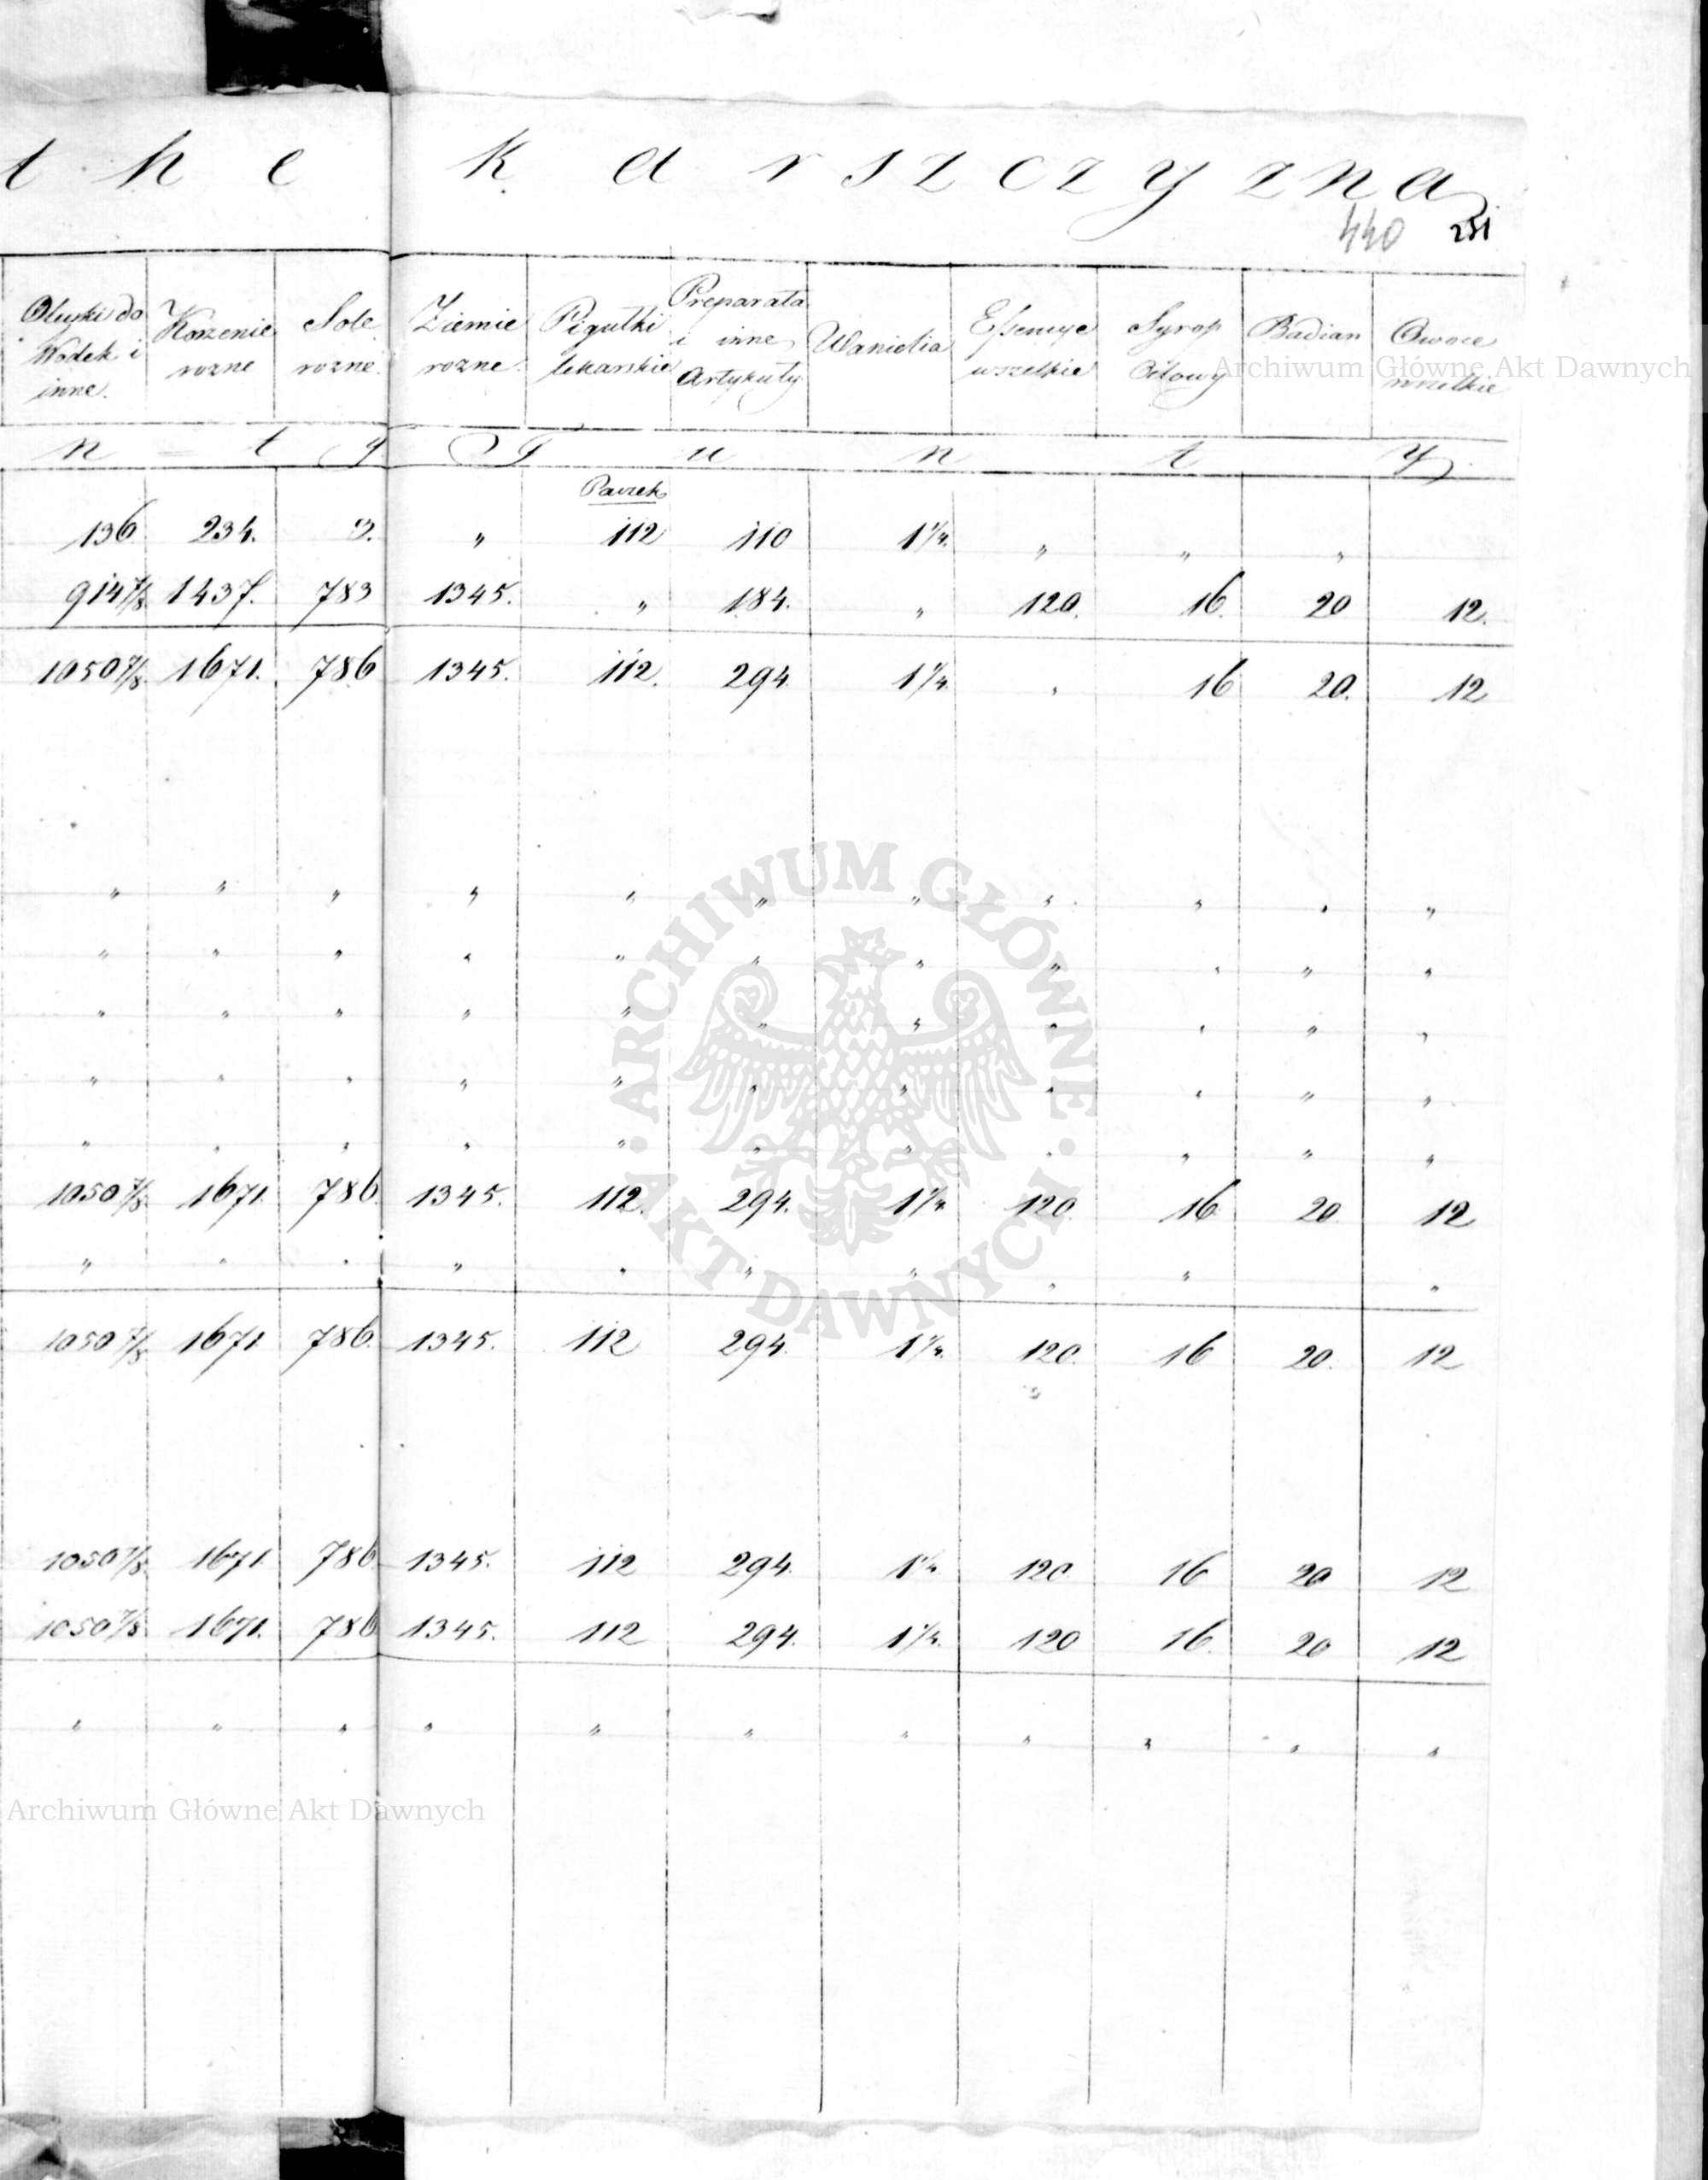 t h e k a r s z c z y z n a
440 251
Oleyki do Wodek i inne. Korzenie rozne Sole rozne Ziemie rozne. Pigułki lekarskie Preparata i inne Artykuły Wanielia Essencye wszelkie Syrop Badian Owoce wszelkie
Archiwum Główne Akt Dawnych
n t y F u n t y
Paczek
136 234. 3. " 112 110 1 1/4. " " "
914 7/8 1437. 783 1345. " 184. " 120. 16. 20 12.
1050 7/8 1671. 786 1345. 112. 294 1 1/4. " 16 20. 12
" " " " " " " " " " "
" " " " " " " " " " "
" " " " " " " " " " "
" " " " " " " " " " "
" " " " " " " " " " "
1050 7/8 1671. 786. 1345. 112. 294. 1 1/4 120 16 20 12
" " " " " " " " " "
1050 7/8 1671 786. 1345. 112 294. 1 1/4. 120. 16 20. 12
1050 7/8 1671 786 1345. 112 294. 1 1/4. 120 16 20 12
1050 7/8 1671. 786 1345. 112 294. 1 1/4. 120 16. 20 12
" " " " " " " " " " "
ARCHIWUM GŁÓWNE AKT DAWNYCH
Archiwum Główne Akt Dawnych